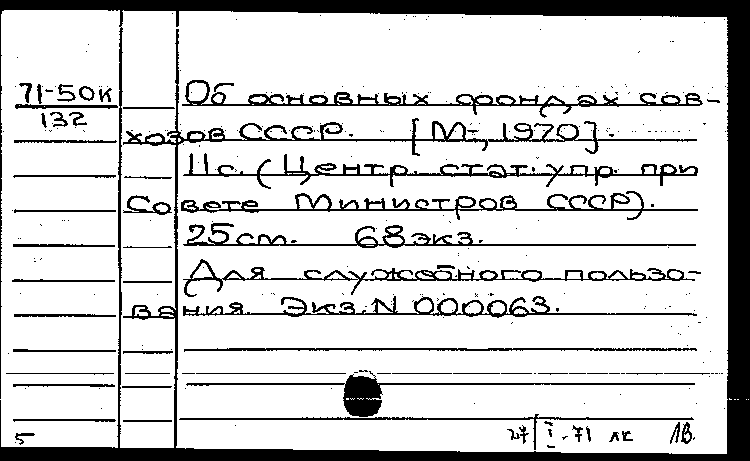 71-50к
132
Об основных фондах сов-
хозов СССР. [М., 1970].
11с. (Центр. стат. упр. при
Совете Министров СССР).
25см. 68экз.
Для служебного пользо-
вания. Экз. N 000063.
5
27 I-71 лк ЛВ.